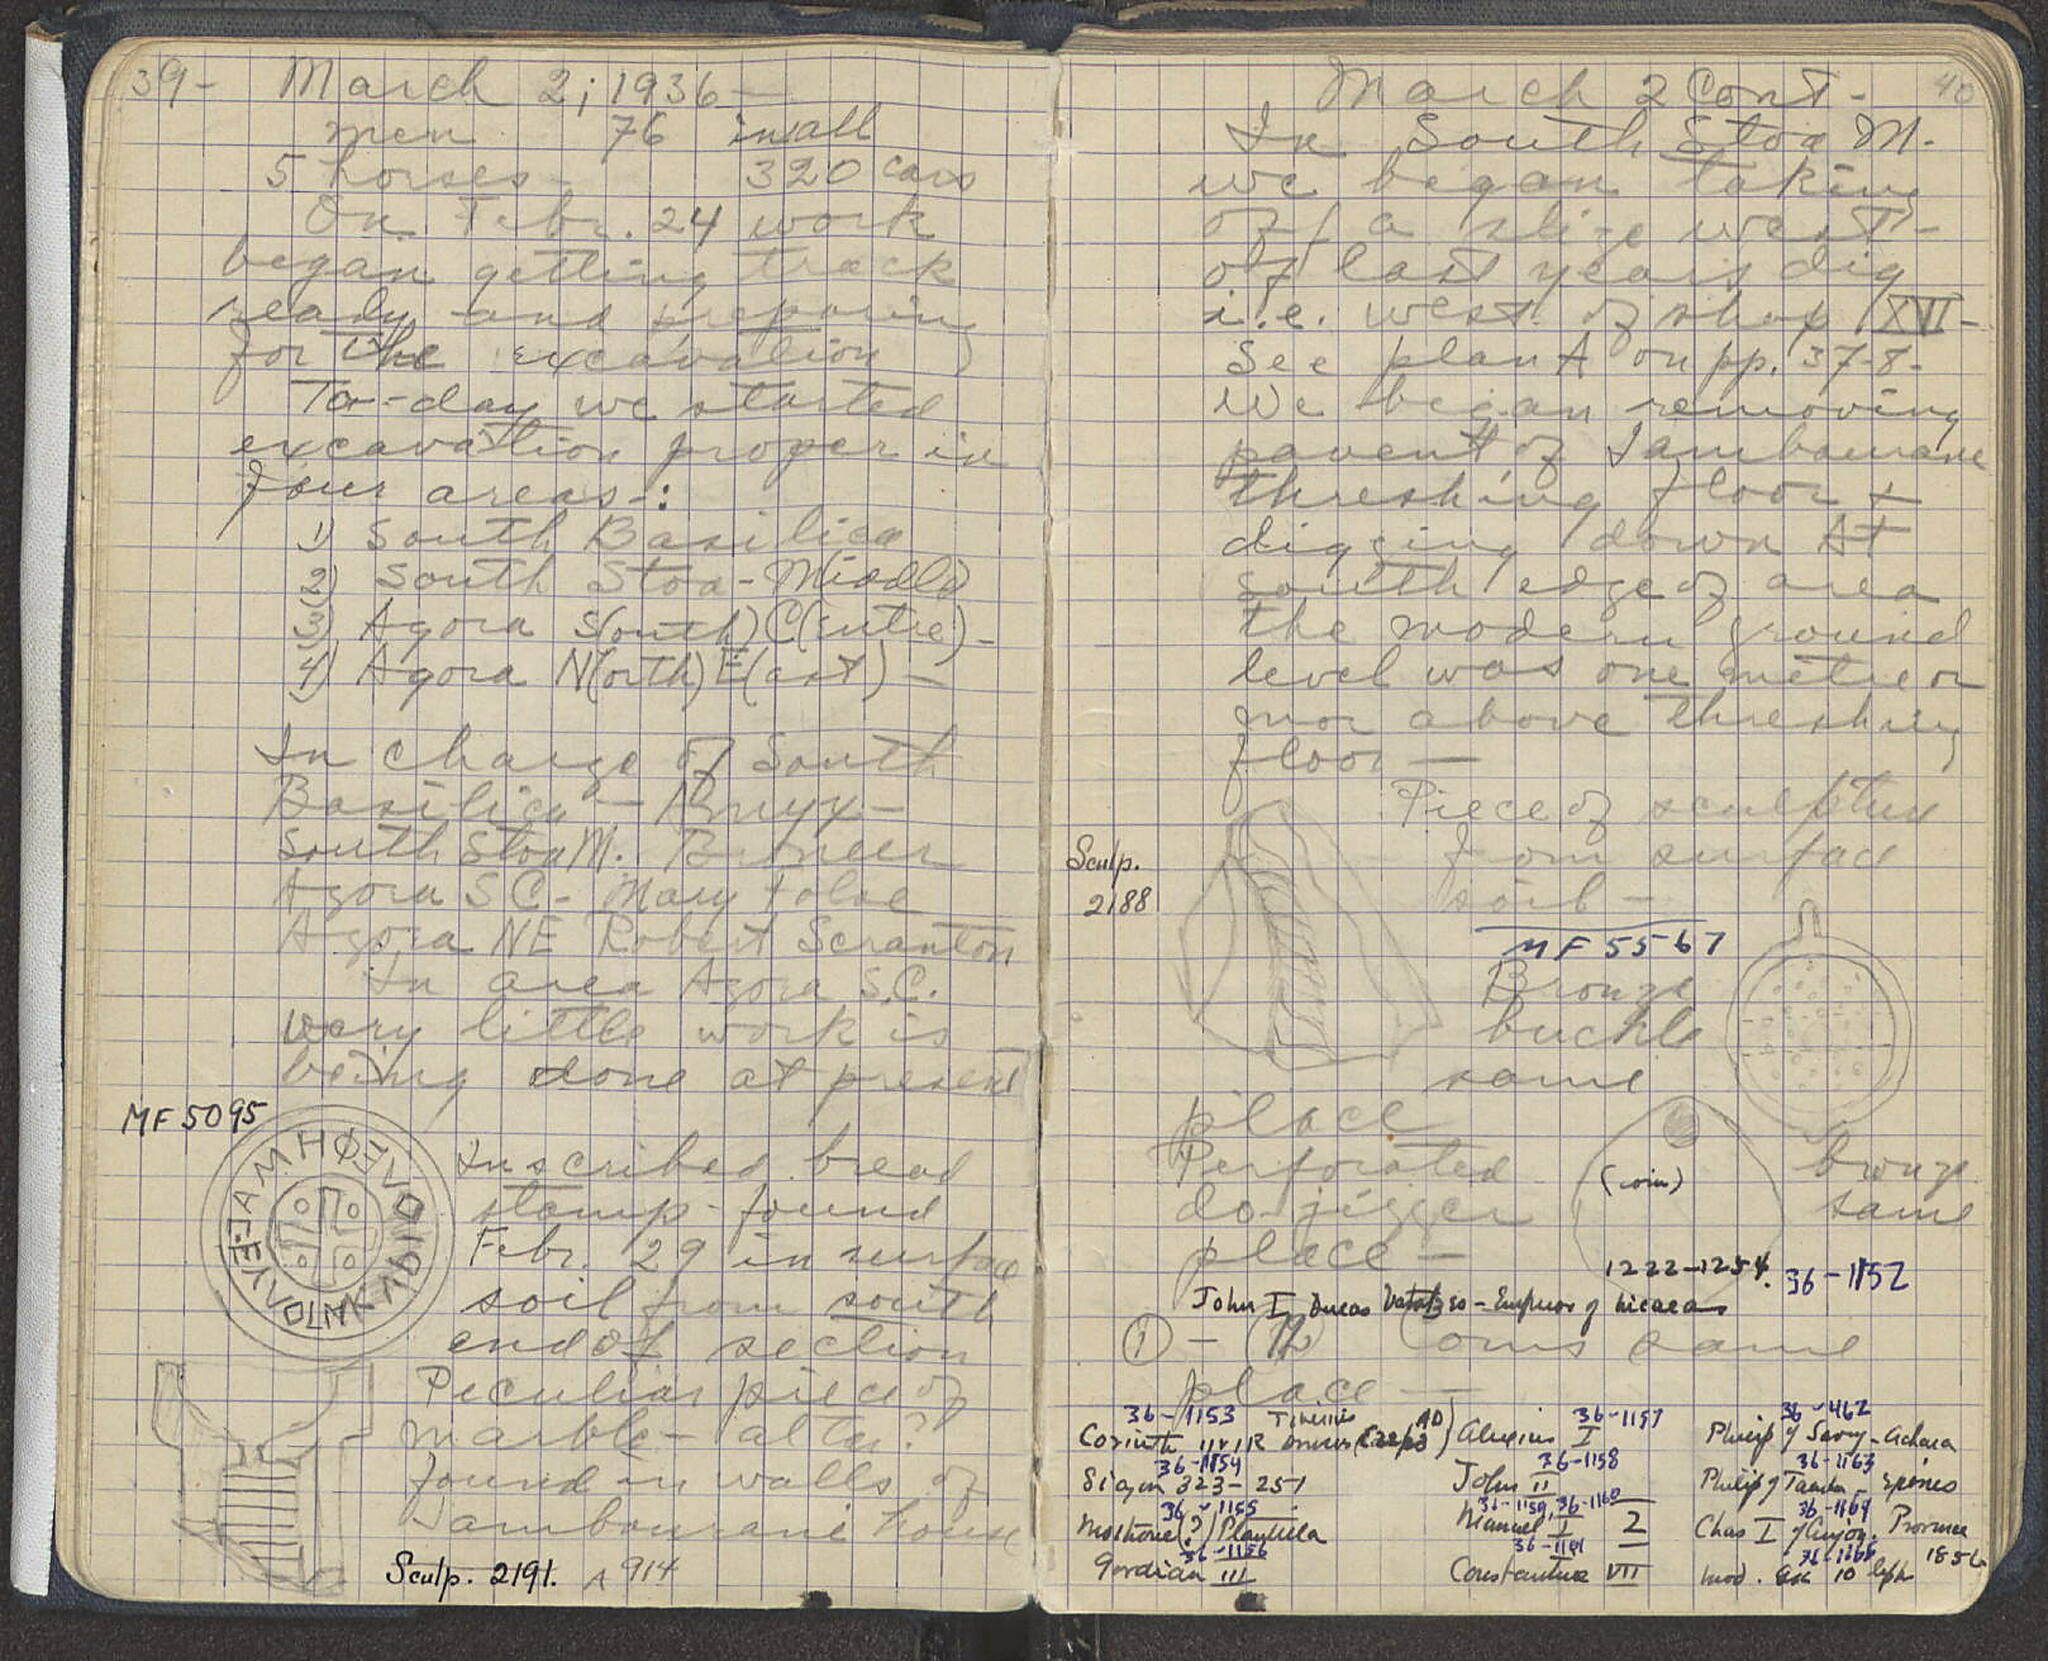 39- March 2, 1936-
men 76 in all
5 horses - 320 cars
On Febr. 24 work
began getting track
ready and preparing
for the excavation
To-day we started
excavation proper in
four areas-:
1) South Basilica
2) South Stoa-M(iddle)
3) Agora S(outh) C(entre)-
4) Agora N(orth) E(ast)-
In charge of South
Basilica - Amyx-
South Stoa M. Broneer
Agora SC-Mary
Agora NE Robert Scranton
In area Agora S.C.
very little work is
being done at present
MF 5095
Inscribed bread
stamp-found
Febr. 29 in surface
soil from south
end of section
Peculiar piece of
marble-altar?
found in walls of
Tambourani house
Sculp. 2191. A 914
March 2 Cont- 40
In South Stoa M.
we began taking
off a slize west-
of last years dig
i.e. west of shop XVI-
See plan A on pp. 37-8-
We began removing
pavent of Tambourane
threshing floor +
digging down At
south edge of area
the modern ground
level was one metre or
mor above threshing
floor-
Piece of sculpture
from surface
soil-
Sculp.
2188
MF 5567
Bronze
buckle
same
place
Perforated bronze
do-jigger same
place-
(coin)
1222-1254. 36-1152
John I Ducas Vatatzes-Emperor of Nicaea
1 - (12) Coins same
place-
36-1153 36-1157 36-462
Corinth II VIR Alexius I Philip of Savoy-Achaea
36-1154 36-1158 36-1163
Sicyon 323-251 John II Philip of Epirus
36-1155 36-1159, 36-1160 36-1164
(?) Plautilla Manuel I 2 Chas I of Anjou. Provence
36-1156 36-1161 36-1165
Gordian III Constantine VII mod. 10 lept